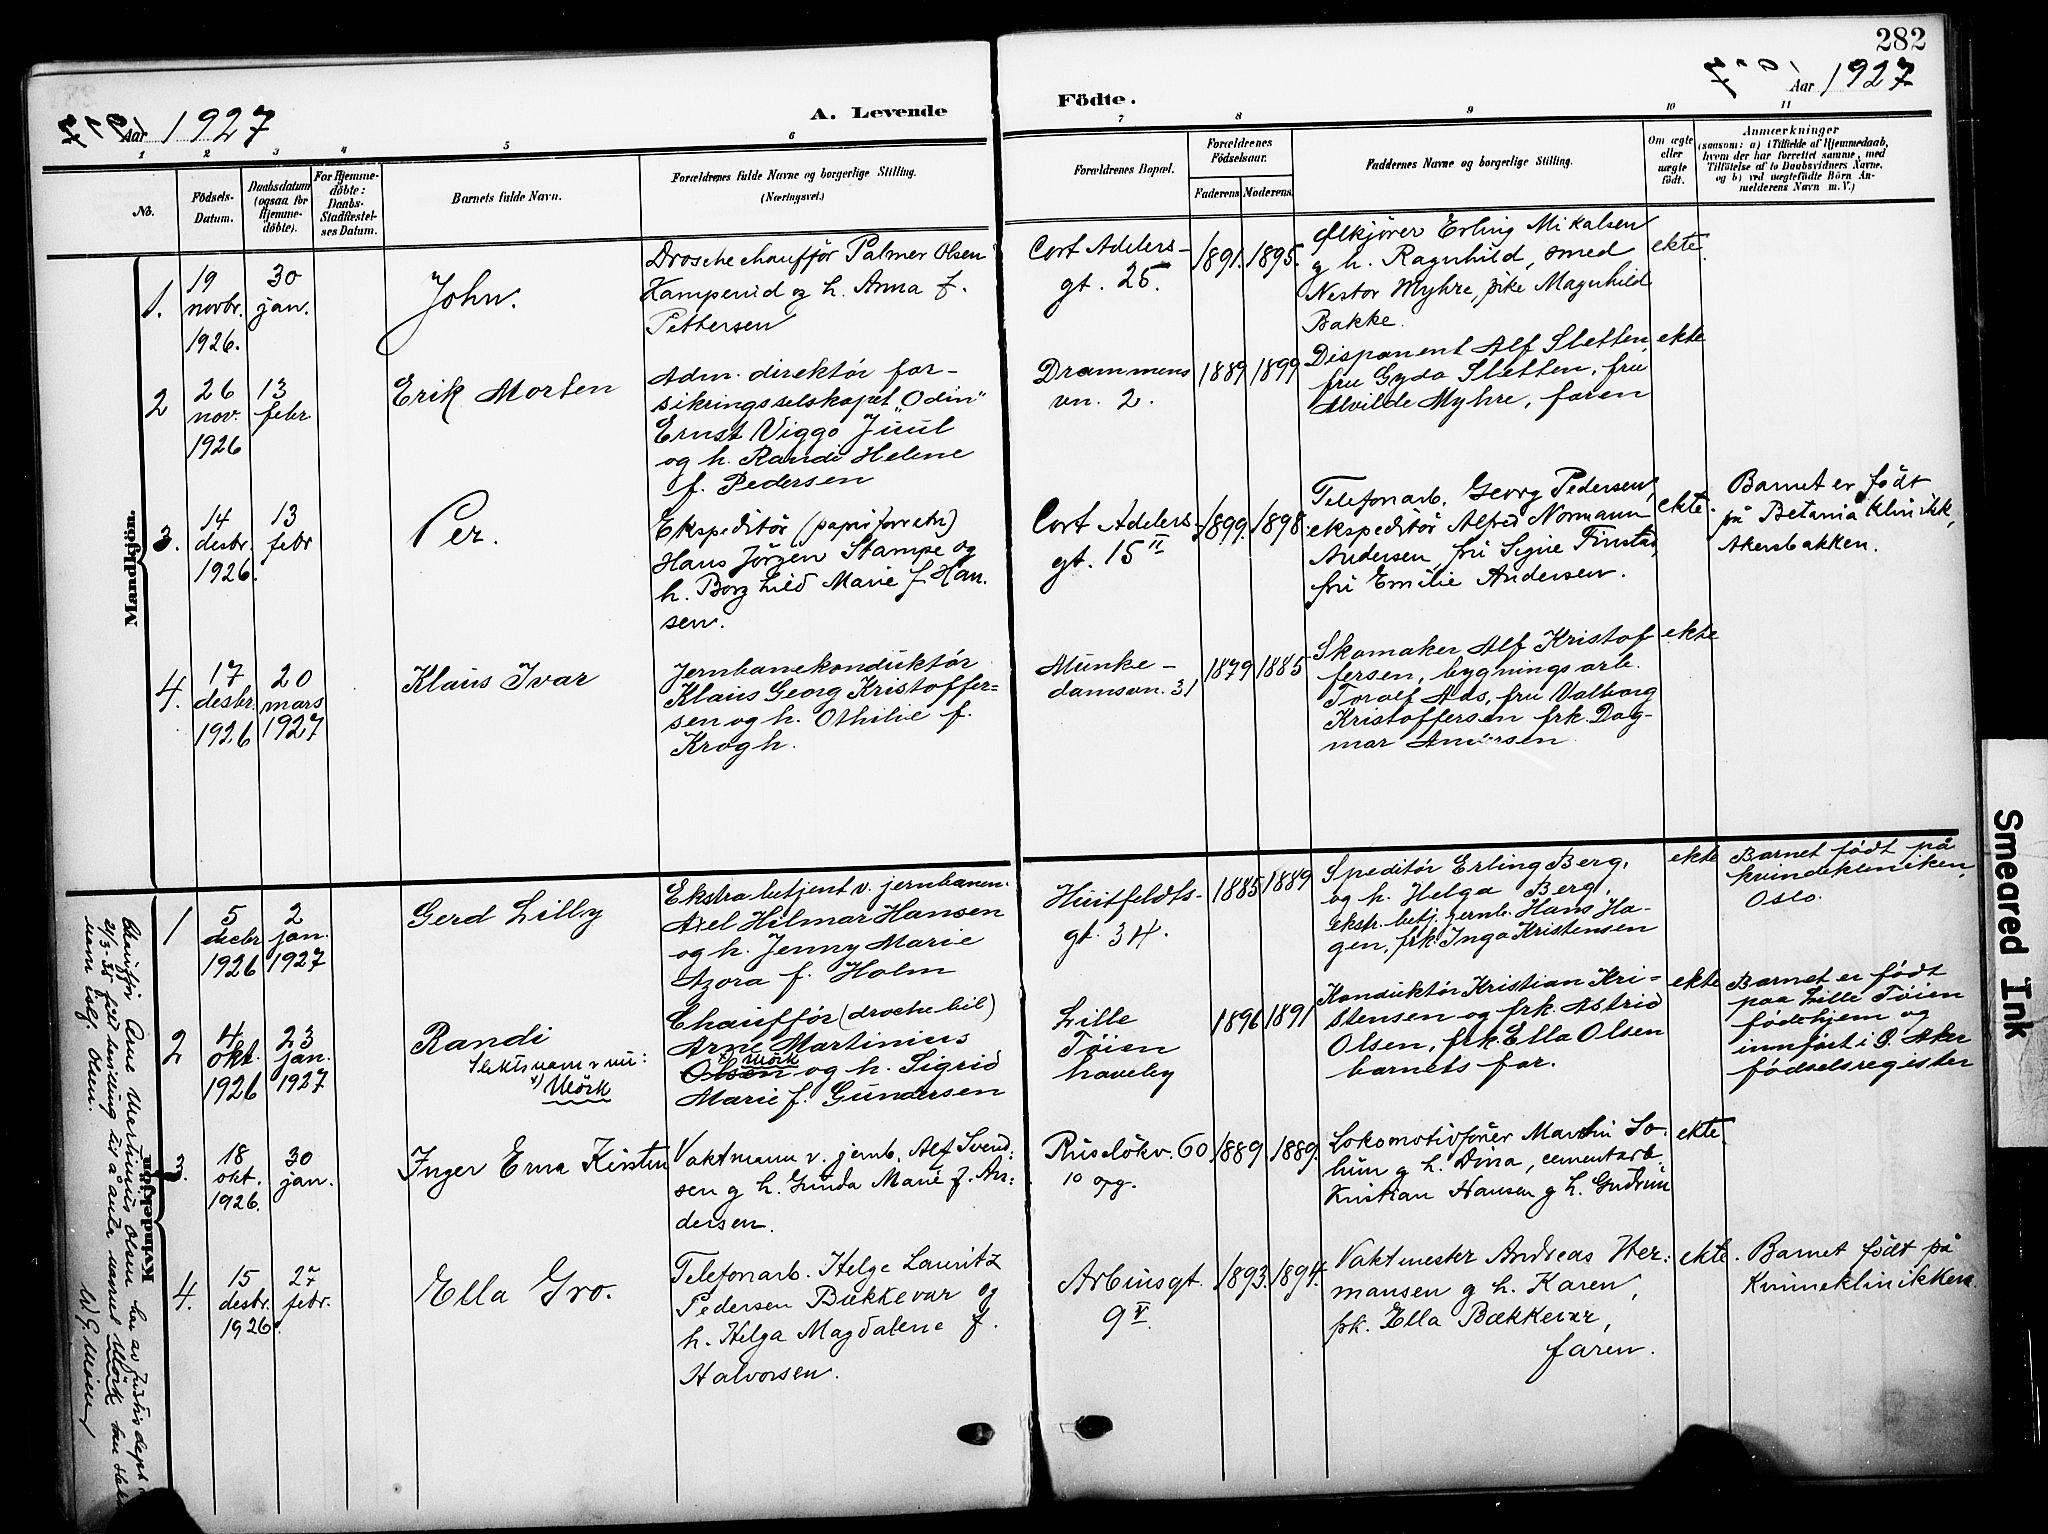 282
Aar 1927
A. Levende
Födte.
Aar 1927
1 2 3 4 5 6 7 8 9 10 11
No.
Födsels-
Datum.
Daabsdatum
(ogsaa for
Hjemme-
döbte).
For Hjemme-
döbte:
Daabs-
Stadfæstel-
ses Datum.
Barnets fulde Navn.
Forældrenes fulde Navne og borgerlige Stilling.
(Næringsvei.)
Forældrenes Bopæl.
Forældrenes
Födselsaar.
Faderens Moderens
Faddernes Navne og borgerlige Stilling.
Om ægte
eller
uægte
födt.
Anmærkninger
(saasom: a) i Tilfælde af Hjemmedaab,
hvem der har forrettet samme, med
Tilföielse af to Daabsvidners Navne,
og b) ved uægtefödte Börn An-
melderens Navn m. V.)
Mandkjön.
1.
19
novbr.
1926.
30
jan.
John.
Droschechaufför Palmer Olsen
Kamperud og h. Anna f.
Pettersen
Cort Adelers-
gt. 25.
1891. 1895.
Ølkjører Erling Mikalsen
g h. Ragnhild, smed
Nestor Myhre, pike Magnhild
Bakke.
ekte.
2
26
nov.
1926
13
febr
Erik Morten
Adm. direktør for-
sikringsselskapet "Odin"
Ernst Viggo Juul
og h. Randi Helene
f. Pedersen
Drammens
vn. 2.
1889 1899
Disponent Alf Sletten,
fru Gyda Sletten, fru
Alvilde Myhre, faren
ekte
3.
14
desbr.
1926.
13
febr
Per.
Ekspeditør (papirforretn)
Hans Jörgen Stampe og
h. Borghild Marie f. Han-
sen.
Cort Adelers-
gt. 15 II
1899. 1898.
Telefonarb. Georg Pedersen,
ekspeditör Alfred Normann
Andersen, fru Signe Finstad,
fru Emilie Andersen.
ekte.
Barnet er født
på Betania klinikk,
Akersbakken.
4.
17
desbr.
1926
20
mars
1927
Klaus Ivar
Jernbanekonduktør
Klaus Georg Kristoffer=
sen og h. Othilie f.
Krogh.
Munke-
damsvn. 31
1879 1885
Skomaker Alf Kristof
fersen, bygningsarb.
Toralf Aas, fru Valborg
Kristoffersen frk. Dag-
mar Andersen
ekte
Kvindekjön.
1
5
decbr
1926
2
jan.
1927
Gerd Lilly
Ekstrabetjent v. jernbanen.
Axel Hilmar Hansen
og h. Jenny Marie
Azora f. Holm
Huitfeldts-
gt. 34.
1885 1889
Speditør Erling Berg,
og h. Helga Berg,
ekstr. betj. jernb. Hans Ha-
gen, frk Inga Kristensen
ekte
Barnet født på
kvindekliniken,
Oslo.
2
4
okt.
1926
23
jan.
1927
Randi
Slektsnavn nu:
x) Mörk
Chauffør (droche bil)
Arne Martinius
x) Mörk
Olsen og h. Sigrid
Marie f. Gundersen
Lille
Tøien
haveby
1896 1891
Konduktør Kristian Kri-
stensen og frk. Astrid
Olsen, frk. Ella Olsen
barnets far.
ekte
Barnet er født
paa Lille Tøien
fødehjem og
innført i Ø. Aker
fødselsregister
3.
18
okt.
1926.
30
jan.
Inger Erna Kirsten
Vaktmann v. jernb. Alf Svend-
sen g h. Gunda Marie f. An:
dersen.
Ruseløkv. 60
10 opg.
1889 1889.
Lokomotivfører Martin So-
lum g h. Dina, cementarb.
Kristian Hansen g h. Gudrun
ekte.
4.
15
desbr.
1926.
27
febr.
Ella Gro.
Telefonarb. Helge Lauritz
Pedersen Bækkevar og
h. Helga Magdalene f.
Halvorsen.
Arbinsgt.
9 V.
1893. 1894.
Vaktmester Andreas Her-
mansen g h. Karen,
frk. Ella Bækkevar,
faren.
ekte.
Barnet født på
Kvinneklinikken.
Chauffør Arne Martinius Olsen har av Justisdept
21/3-35 fått bevilling til å anta navnet Mörk
navn Olsen.
Smeared Ink